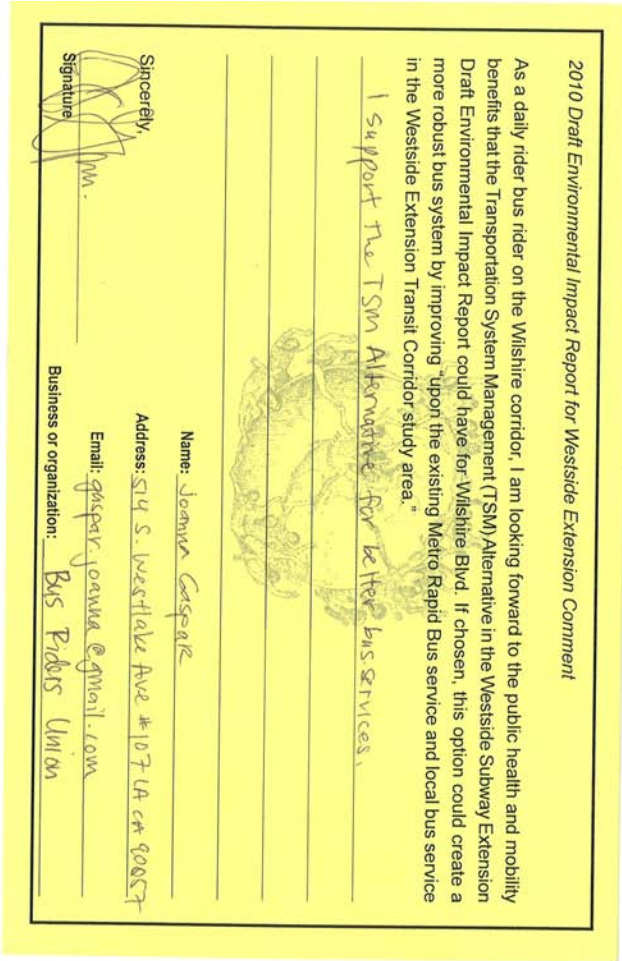 2010 Draft Environmental Impact Report for Westside Extension Comment
As a daily rider bus rider on the Wilshire corridor, I am looking forward to the public health and mobility
benefits that the Transportation System Management (TSM) Alternative in the Westside Subway Extension
Draft Environmental Impact Report could have for Wilshire Blvd. If chosen, this option could create a
more robust bus system by improving "upon the existing Metro Rapid Bus service and local bus service
in the Westside Extension Transit Corridor study area."
I support the TSM Alternative for better bus services.
Sincerely,
Signature
Name: Joanna Gaspar
Address: 514 S. Westlake Ave #107 LA CA 90057
Email: gaspar.joanna@gmail.com
Business or organization: Bus Riders Union